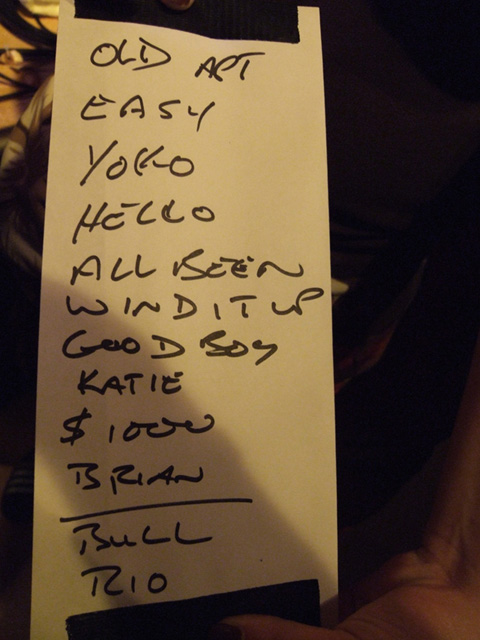 OLD APT
EASY
YOKO
HELLO
ALL BEEN
WIND IT UP
GOOD BOY
KATIE
$1000
BRIAN
BULL
RIO